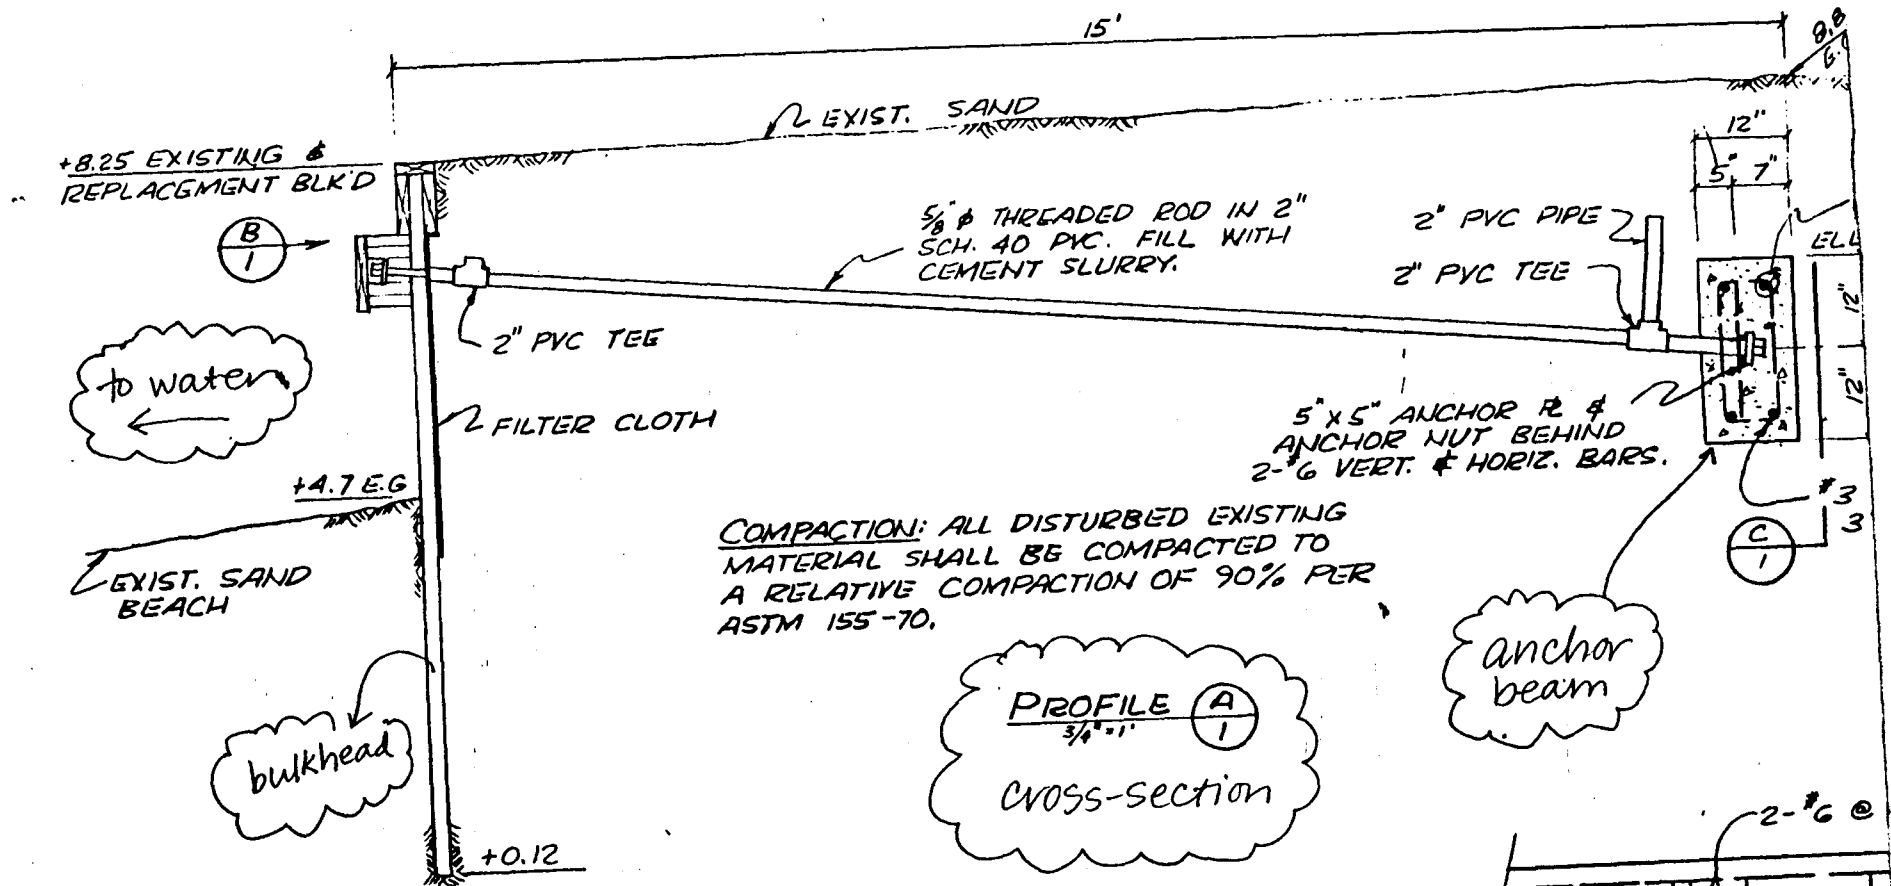 15'
8.8
EXIST. SAND
+8.25 EXISTING &
REPLACGMENT BLK'D
12"
5" 7"
B
1
5/8" φ THREADED ROD IN 2"
SCH. 40 PVC. FILL WITH
CEMENT SLURRY.
2" PVC PIPE
2" PVC TEE
ELL
12"
12"
2" PVC TEE
to water
FILTER CLOTH
5" X 5" ANCHOR PL &
ANCHOR NUT BEHIND
2-#6 VERT. & HORIZ. BARS.
+4.7 E.G
#3
3
C
1
EXIST. SAND
BEACH
COMPACTION: ALL DISTURBED EXISTING
MATERIAL SHALL BE COMPACTED TO
A RELATIVE COMPACTION OF 90% PER
ASTM 155-70.
anchor
beam
PROFILE A
3/4"=1' 1
cross-section
bulkhead
2-#6 @
+0.12